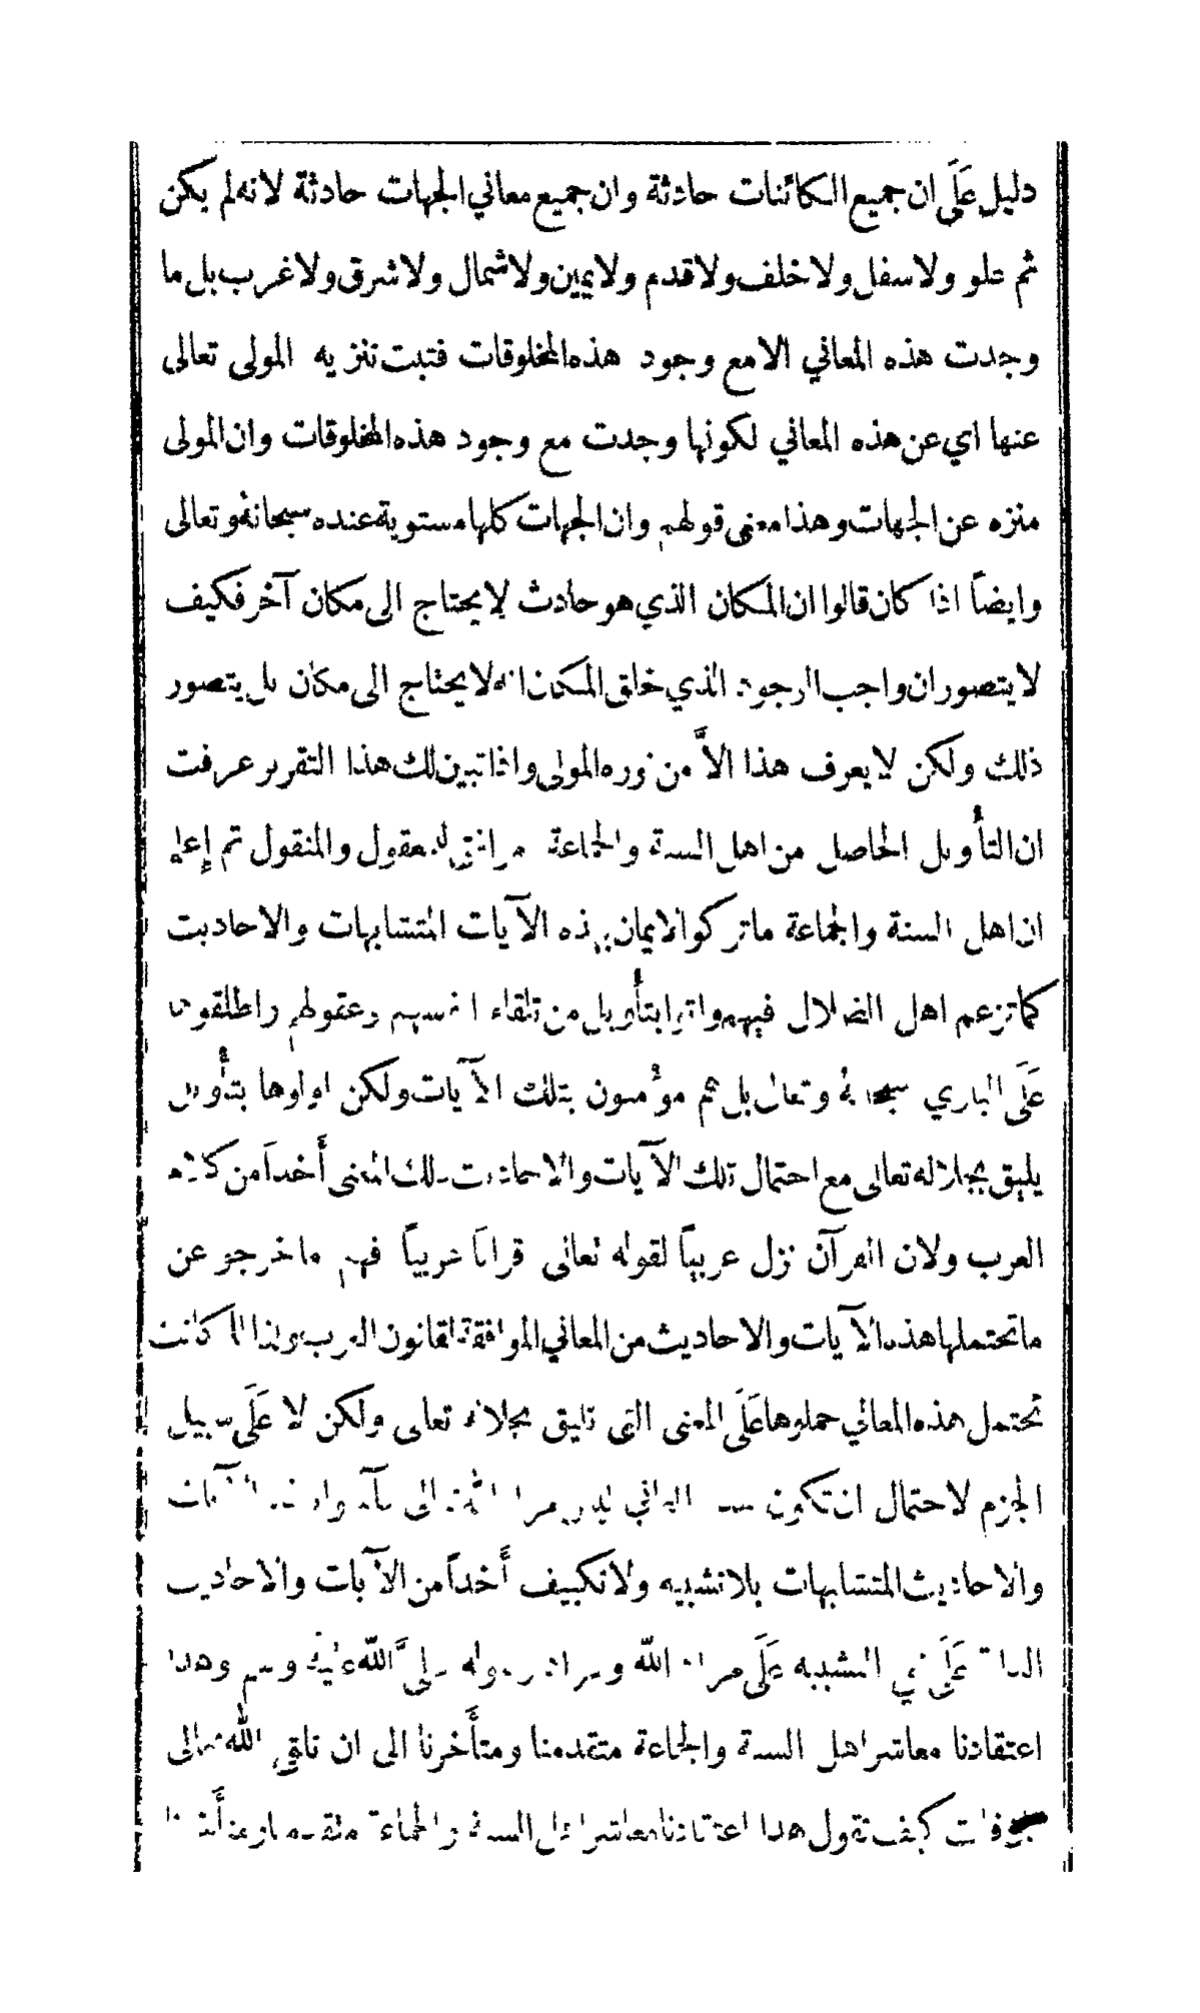 دليل عَلَى ان جميع الكائنات حادثة وان جميع معاني الجهات حادثة لانه لم يكن
ثم علو ولا سفل ولا خلف ولا قدم ولا يمين ولا شمال ولا شرق ولا غرب بل ما
وجدت هذه المعاني الا مع وجود هذه المخلوقات فثبت تنزيه المولى تعالى
عنها اي عن هذه المعاني لكونها وجدت مع وجود هذه المخلوقات وان المولى
منزه عن الجهات وهذا معنى قولهم وان الجهات كلها مستوية عنده سبحانه وتعالى
وايضاً اذا كان قالوا ان المكان الذي هو حادث لا يحتاج الى مكان آخر فكيف
لا يتصور ان واجب الوجود الذي خلق المكان انه لا يحتاج الى مكان بل يتصور
ذلك ولكن لا يعرف هذا الاَّ من نوره المولى واذا تبين لك هذا التقرير عرفت
ان التأويل الحاصل من اهل السنة والجماعة موافق للمعقول والمنقول ثم إعلم
ان اهل السنة والجماعة ما تركوا الايمان بهذه الآيات المتشابهات والاحاديث
كما تزعم اهل الضلال فيهم واتوا بتأويل من تلقاء انفسهم وعقولهم واطلقوه
عَلَى الباري سبحانه وتعالى بل هم مؤمنون بتلك الآيات ولكن اولوها بتأويل
يليق بجلاله تعالى مع احتمال تلك الآيات والاحاديث لذلك المعنى أخداً من كلام
العرب ولان القرآن نزل عربياً لقوله تعالى قراناً عربياً فهم ما خرجو عن
ما تحتملها هذه الآيات والاحاديث من المعاني الموافقة لقانون العرب ولذا لما كانت
تحتمل هذه المعاني حملوها عَلَى المعنى التى تليق بجلاله تعالى ولكن لا عَلَى سبيل
الجزم لاحتمال ان تكون
والاحاديث المتشابهات بلا تشبيه ولا تكييف أخداً من الآيات والاحاديث
عَلَى نفي التشبيه عَلَى مراد الله ومراد رسوله صلى اللّٰه عليه وسلم وهذا
اعتقادنا معاشر اهل السنة والجماعة متقدمنا ومتأخرنا الى ان نلقى الله تعالى
كيف تقول هذا اعتقادنا معاشر اهل السنة والجماعة